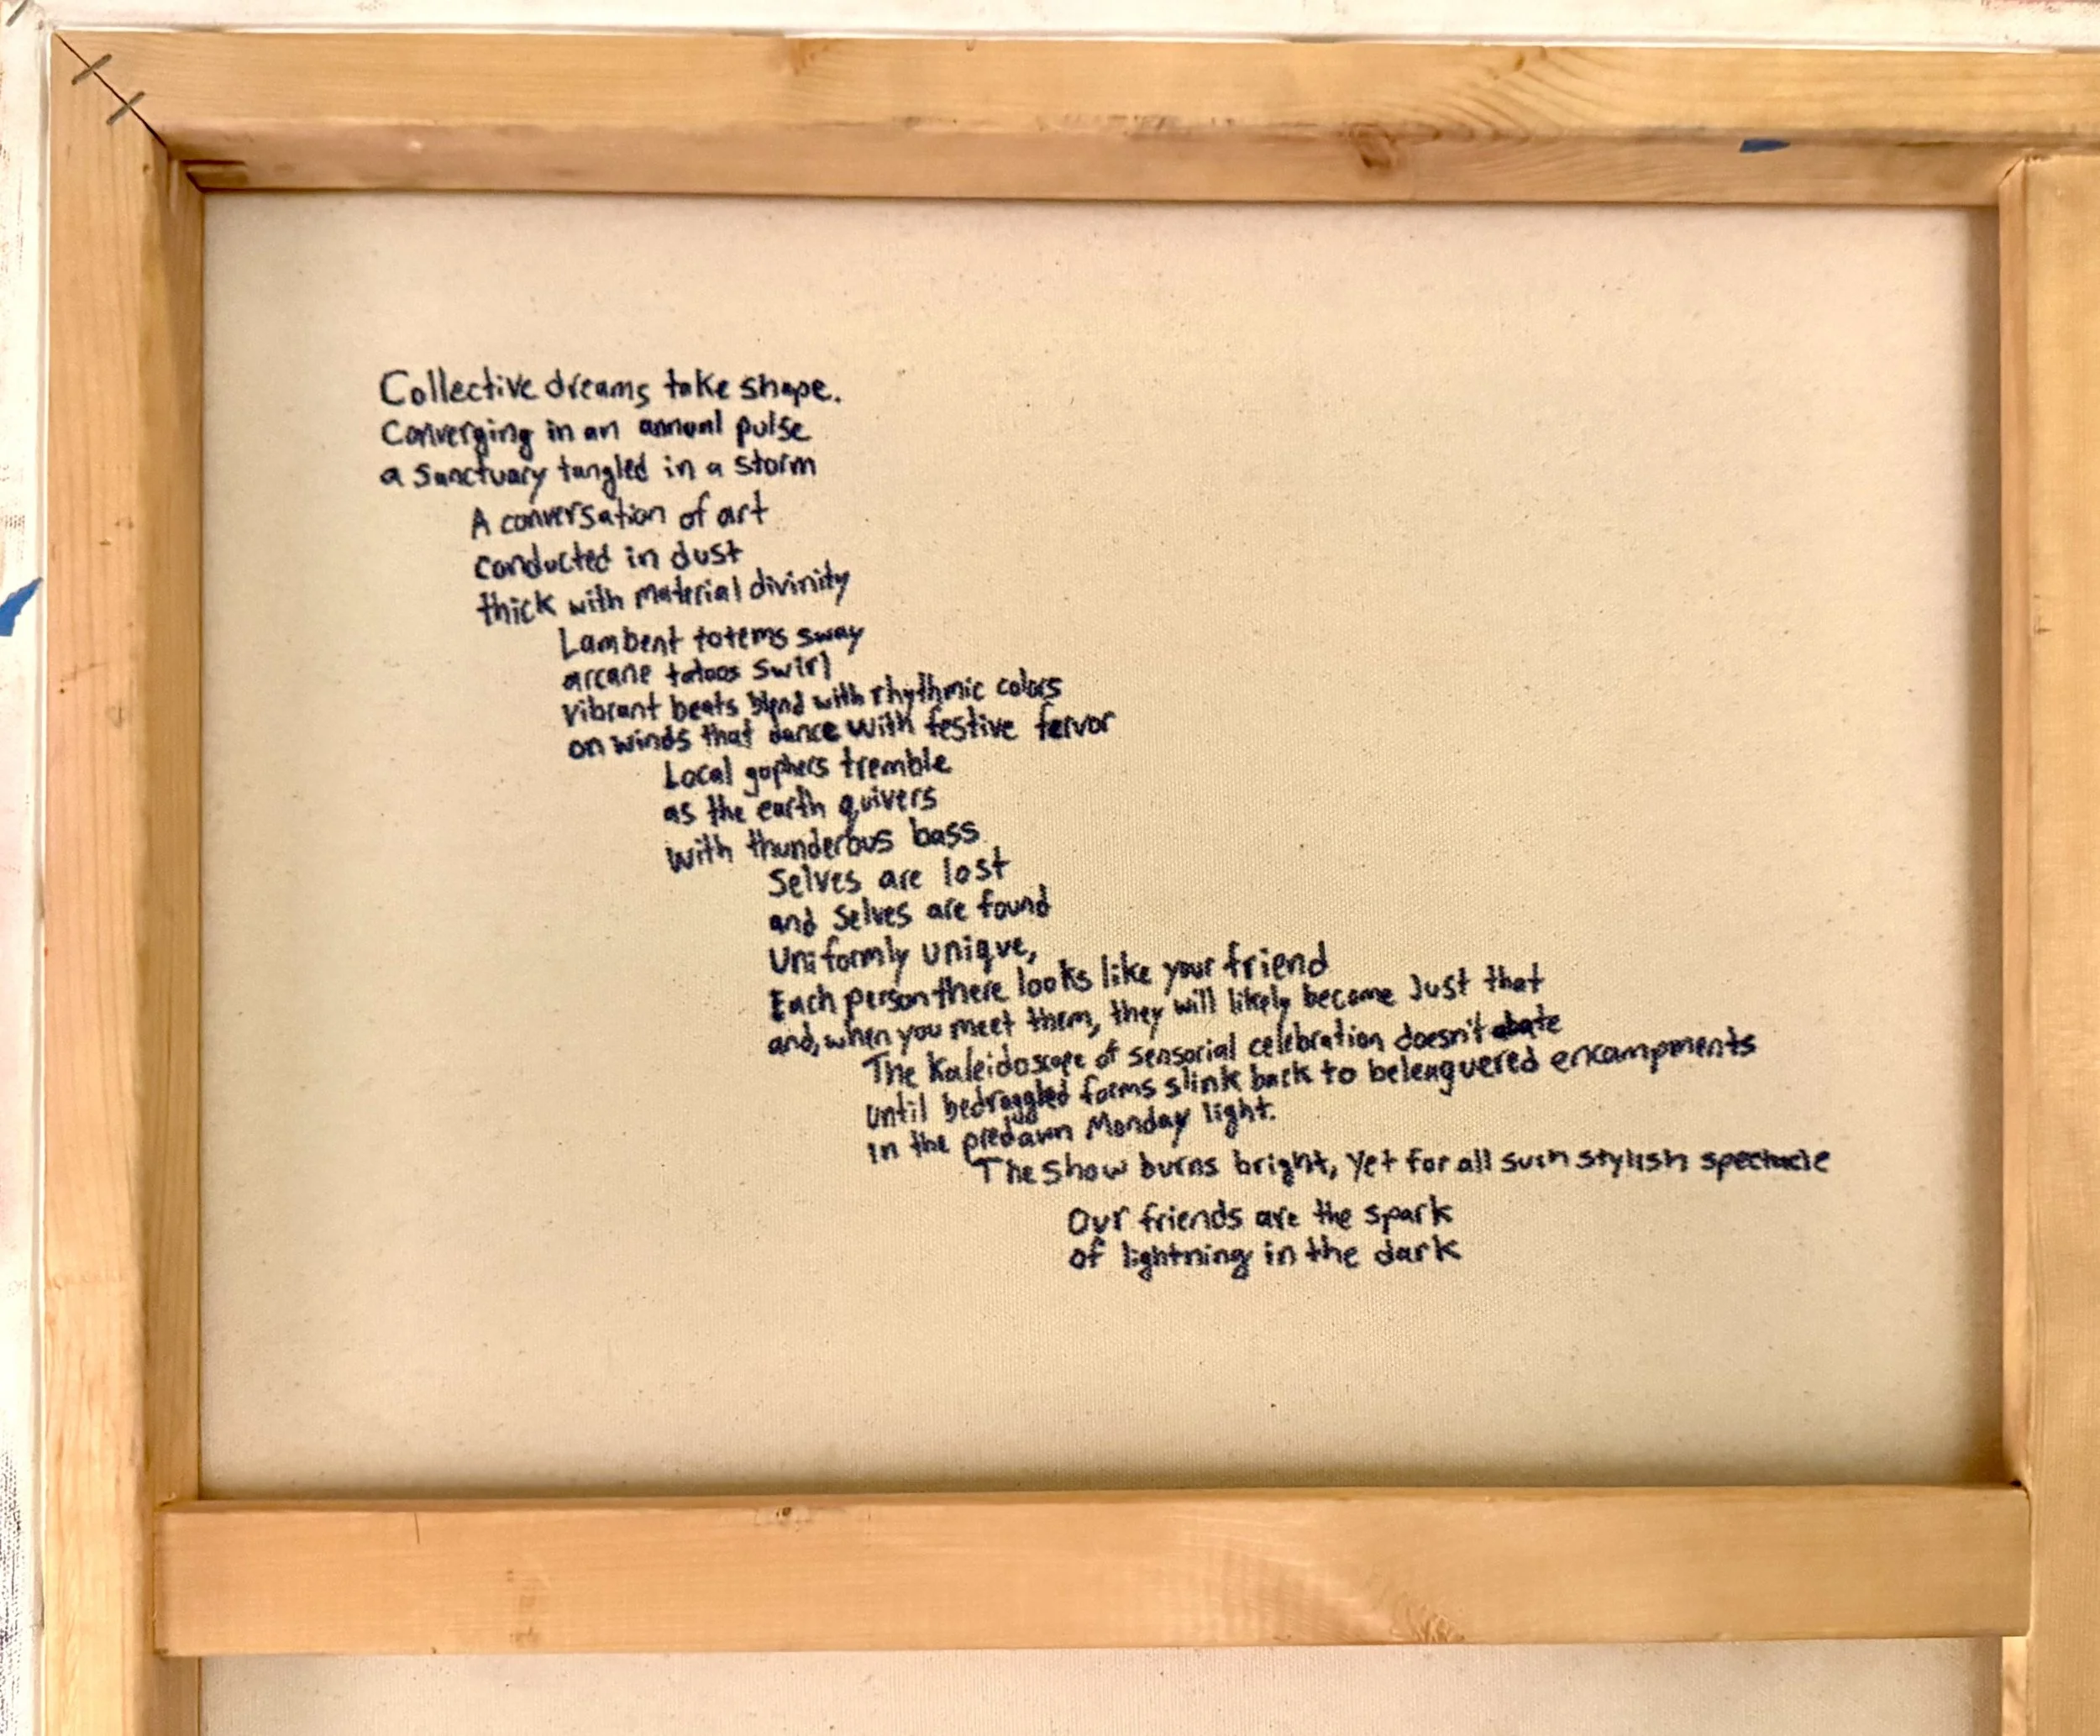 Collective dreams take shape.
Converging in an annual pulse
a sanctuary tangled in a storm
A conversation of art
conducted in dust
thick with material divinity
Lambent totems sway
arcane tatoos swirl
vibrant beats blend with rhythmic colors
on winds that dance with festive fervor
Local gophers tremble
as the earth quivers
with thunderous bass
Selves are lost
and selves are found
Uniformly unique,
Each person there looks like your friend
and, when you meet them, they will likely become Just that
The Kaleidoscope of sensorial celebration doesn't abate
until bedraggled forms slink back to beleaguered encampments
in the predawn Monday light.
The show burns bright, yet for all such stylish spectacle
Our friends are the spark
of lightning in the dark